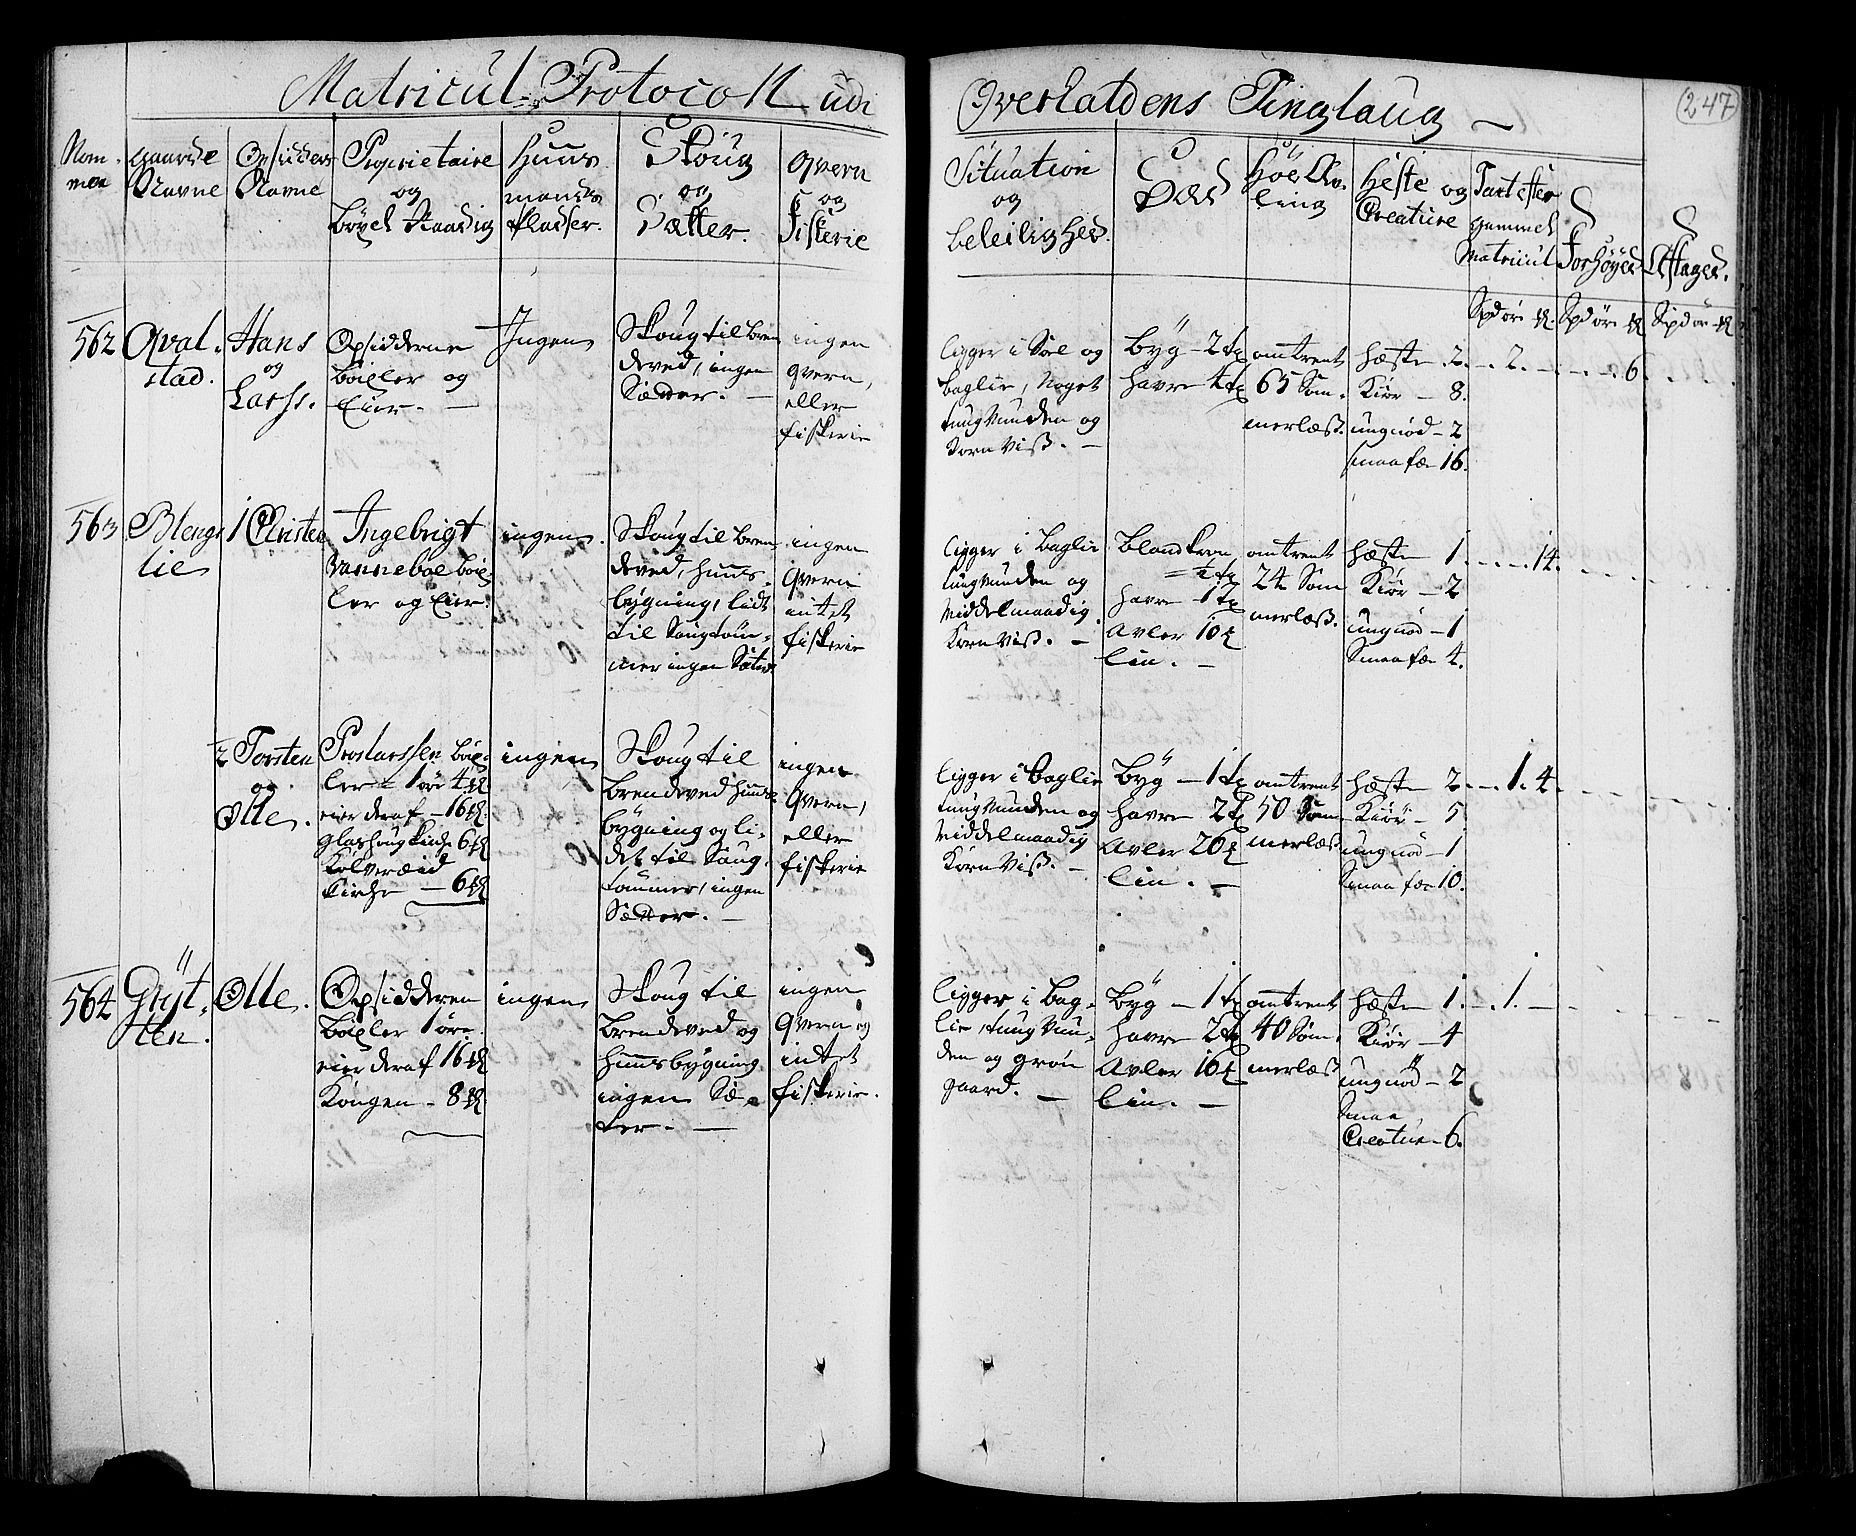 Matricul Protocoll udi Overhaldens Tinglaug
247
Nom-
mer
gaarde
Navne
Opsidders
Navne
Proprietaire
og
böxel Raadig
Huus
mands
Pladser.
Skoug
og
Sætter.
Qvern
og
Fiskerie
Situation
og
beleilighed.
Sæd
Höe Av-
ling
Heste og
Creature
Taxt efter
gammel
Matricul
Forhöyed
Aftaged.
Spd ört
Spd ört
Spd ört
562
Qval-
stad.
Hans
og
Larss.
Opsidderne
böxler og
Eier.
Ingen
Skoug til bren
deved, ingen
Sætter.
ingen
qvern,
eller
fiskerie
ligger i Soel og
baglie, Noget
tungvunden og
Korn Viss.
byg - 2 tr
havre 4 tr
omtrent
65 Som-
merlæss.
hæste 2.
Kiör - 8.
ungnöd - 2
smaa fæ 16.
2.
6.
563
Blengs
lie
1 Christen
Ingebrigt
Ranneboe böx-
ler og Eier.
ingen.
Skoug til bren-
deved, huus-
bygning, lidt
til Saugtöm-
mer ingen Sæter
ingen
Qvern
intet
fiskerie
ligger i baglie
tungvunden og
Middelmaadig
Korn Viss.
blandkorn
½ tr
havre 1 tr
Avler 10 ℔
lin.
omtrent
24 Som
merlæss.
hæste 1.
Kiör - 2
ungnöd - 1
Smaa fæ 4.
14.
2 Torsten
og
Olle.
Prostarssen böx-
ler - 1 öre 4 ℔
eier deraf - 16 ℔
glashoug Kirche 6 ℔
Kolvereid
Kirche - 6 ℔
ingen
Skoug til
brendeved huus-
bygning og li-
det til Saug-
tömmer, ingen
Sætter.
ingen
Qvern,
eller
fiskerie
ligger i baglie
tungvunden og
Middelmaadig
Korn Viss.
byg - 1 tr
havre 2 tr
Avler 20 ℔
lin.
omtrent
50 Som
merlæss
hæste 2
Kiör - 5
ungnöd - 1
Smaa fæ 10.
1. 4.
564
Gryt-
ten.
Olle.
Opsidderen
böxler 1 öre.
eier deraf 16 ℔
Kongen - 8 ℔
ingen
Skoug til
brendeved og
huusbygning
ingen Sæ-
ter.
ingen
Qvern og
intet
fiskerie.
ligger i bag-
lie, tungvun-
den og grön
gaard.
byg - 1 tr
havre 2 tr
Avler 16 ℔
lin.
omtrent
40 Som-
merlæss
hæste 1.
Kiör - 4
ungnöd - 2
Smaa
Creatur 6.
1.